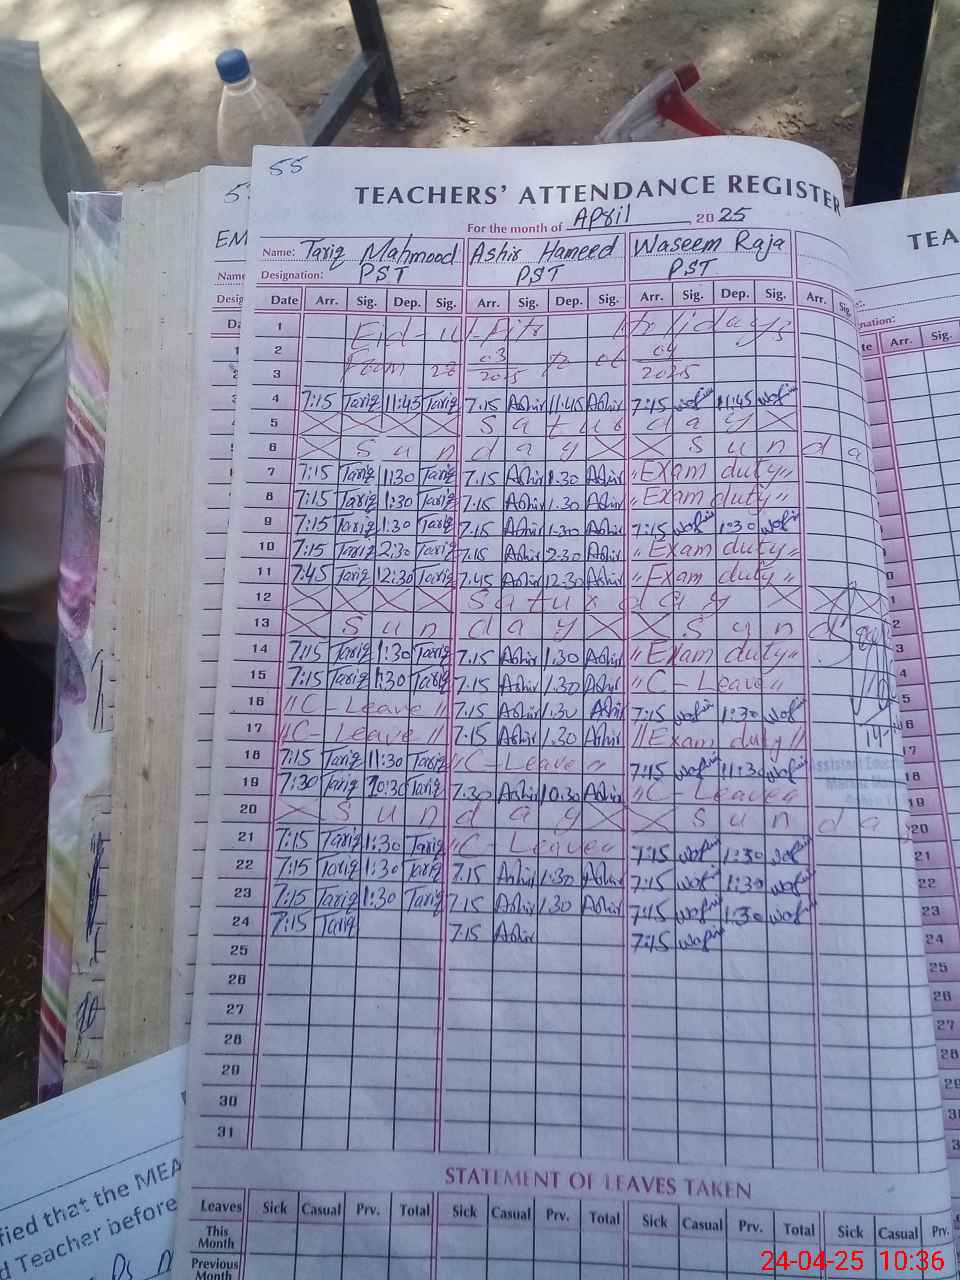 55
TEACHERS' ATTENDANCE REGISTER
For the month of April 2025
Name: Tariq Mahmood Ashir Hameed Waseem Raja
Designation: PST PST PST
Date Arr. Sig. Dep. Sig. Arr. Sig. Dep. Sig. Arr. Sig. Dep. Sig. Arr. Sig.
1 Eid-ul-Fitr Holidays
2 From 28 03 to 04
3 2025 2025
4 7:15 Tariq 11:45 Tariq 7.15 Ashir 11.45 Ashir 7:15 11:45
5 Saturday
6 Sunday Sunda
7 7:15 Tariq 1:30 Tariq 7.15 Ashir 1.30 Ashir "Exam duty"
8 7:15 Tariq 1:30 Tariq 7.15 Ashir 1.30 Ashir "Exam duty"
9 7:15 Tariq 1:30 Tariq 7.15 Ashir 1.30 Ashir 7:15 1:30
10 7:15 Tariq 2:30 Tariq 7.15 Ashir 2.30 Ashir "Exam duty"
11 7:45 Tariq 12:30 Tariq 7.45 Ashir 12.30 Ashir "Exam duty"
12 Saturday
13 Sunday Sund
14 7:15 Tariq 1:30 Tariq 7.15 Ashir 1.30 Ashir "Exam duty"
15 7:15 Tariq 1:30 Tariq 7.15 Ashir 1.30 Ashir "C-Leave"
16 "C-Leave" 7.15 Ashir 1.30 Ashir 7:15 1:30
17 "C-Leave" 7.15 Ashir 1.30 Ashir "Exam duty"
18 7:15 Tariq 11:30 Tariq "C-Leave" 7:15 11:30
19 7:30 Tariq 10:30 Tariq 7.30 Ashir 10.30 Ashir "C-Leave"
20 Sunday Sunda
21 7:15 Tariq 1:30 Tariq "C-Leave" 7:15 1:30
22 7:15 Tariq 1:30 Tariq 7.15 Ashir 1.30 Ashir 7:15 1:30
23 7:15 Tariq 1:30 Tariq 7.15 Ashir 1.30 Ashir 7:15 1:30
24 7:15 Tariq 7.15 Ashir 7:15
25
26
27
28
29
30
31
STATEMENT OF LEAVES TAKEN
Leaves Sick Casual Prv. Total Sick Casual Prv. Total Sick Casual Prv. Total Sick Casual Prv.
This Month
Previous Month
fied that the MEA
d Teacher before
24-04-25 10:36